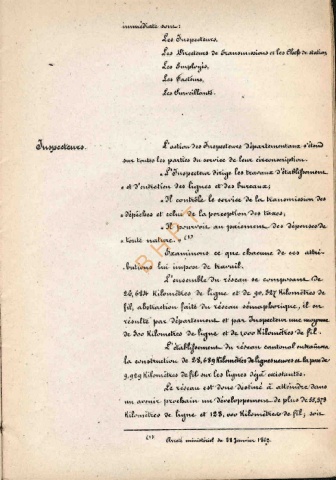 immédiate sont:
Les Inspecteurs,
Les Directeurs de transmissions et les Chefs de station
Les Employés,
Les Facteurs,
Les Surveillants.
Inspecteurs.
L'action des Inspecteurs départementaux s'étend
sur toutes les parties du service de leur circonscription.
"L'Inspecteur dirige les travaux d'établissement
" et d'entretien des lignes et des bureaux;
" Il contrôle le service de la transmission des
" dépêches et celui de la perception des taxes;
" Il pourvoit au paiement des dépenses de
" toute nature." (1)
Examinons ce que chacune de ces attri-
butions lui impose de travail.
L'ensemble du réseau se composant de
26,684 Kilomètres de lignes et de 90,327 Kilomètres de
fil, abstraction faite du réseau sémaphorique, il en
résulte par département et par Inspecteur une moyenne
de 300 Kilomètres de ligne et de 1,000 Kilomètres de fil.
L'établissement du réseau cantonal entraînera
la construction de 28,689 Kilomètres de lignes neuves et la pose de
9,929 Kilomètres de fil sur les lignes déjà existantes.
Le réseau est donc destiné à atteindre dans
un avenir prochain un développement de plus de 55,373
Kilomètres de ligne et 128,000 Kilomètres de fil; soit
(1) Arrêté ministériel du 28 Janvier 1862.
BHPT